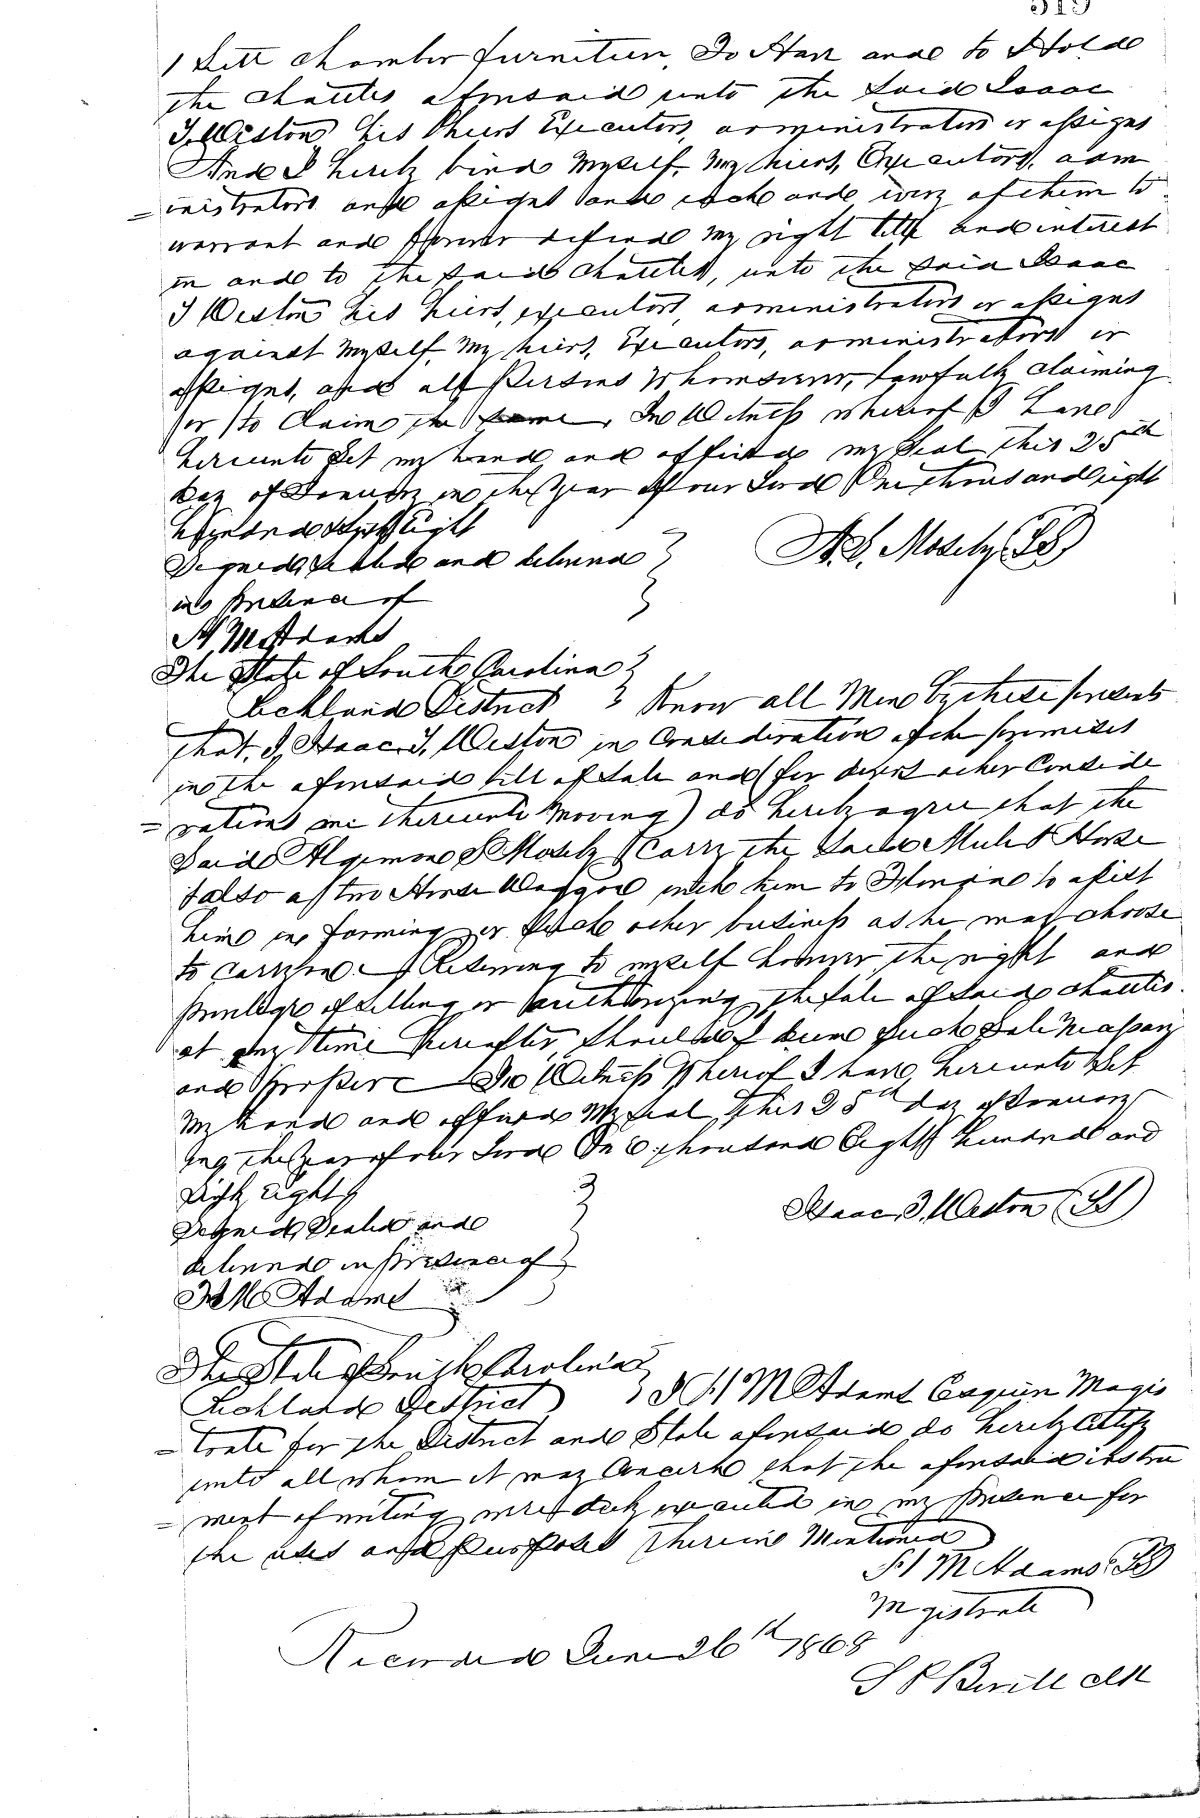 519
1 Sett chamber furniture, To Have and to Hold
the chattles aforesaid unto the Said Isaac
T. Weston his heirs Executors, administrators or assigns
And I hereby bind Myself, My heirs, Executors, adm
=inistrators and assigns and each and every of them to
warrant and forever defend my right title and interest
in and to the said chattles, unto the said Isaac
T Weston his heirs, executors, administrators or assigns
against Myself My heirs, Executors, administrators or
assigns, and all Persons Whomsoever, lawfully claiming
or to Claim the same, In Witness whereof I have
hereunto Set my hand and affixed my Seal this 25th
day of January in the Year of our Lord One thousand eight
hundred & Sixty Eight
Signed, Sealed and delivered
in presence of
A. S. Mosely (LS)
H McAdams
The State of South Carolina
Richland District Know all Men by these presents
that, I, Isaac T. Weston in Consideration of the premises
in the aforesaid bill of Sale and (for divers other Conside
=rations me thereunto Moving) do hereby agree that the
Said Algernon S Mosely Carry the Said Mules & Horse
& also a two Horse Waggon with him to to assist
him in farming or Such other business as he may choose
to carry on. Reserving to myself however the right and
privilege of selling or authorizing the sale of Said chattles
at any time hereafter, Should I deem Such Sale Necessary
and Proper In Witness Whereof I have hereunto Set
My hand and affixed My Seal this 25th day of January
in the Year of our Lord One thousand Eight hundred and
Sixty Eight
Isaac T. Weston (LS)
Signed, Sealed and
delivered in presence of
McAdams
The State of South Carolina
Richland District I H McAdams Esquire Magis
=trate for the District and State aforesaid do hereby Certify
unto all whom it may Concern that the aforesaid instru
=ment of writing were duly executed in my presence for
the uses and purposes therein Mentioned
H McAdams (LS)
Magistrate
Recorded June 26th 1868
clk